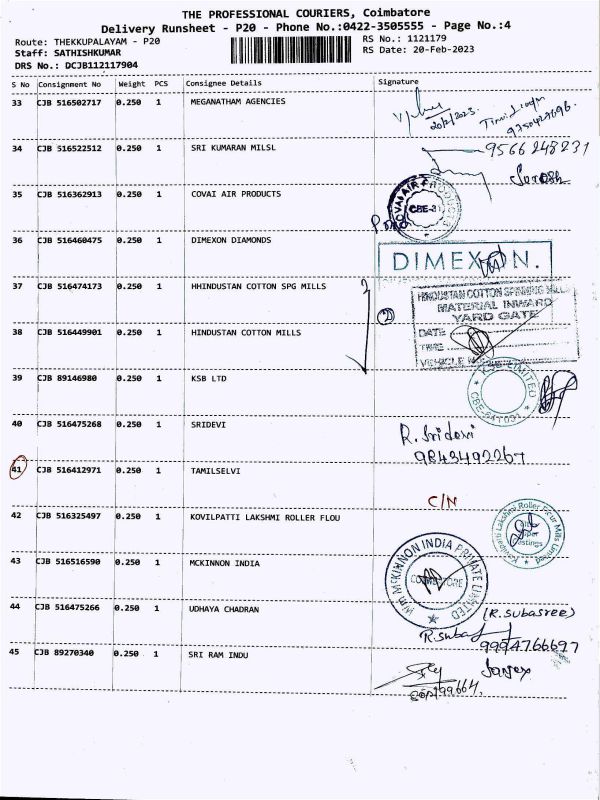 THE PROFESSIONAL COURIERS, Coimbatore
Delivery Runsheet - P20 - Phone No.:0422-3505555 - Page No.:4
Route: THEKKUPALAYAM - P20
RS No.: 1121179
Staff: SATHISHKUMAR
RS Date: 20-Feb-2023
DRS No.: DCJB112117904
S No Consignment No Weight PCS Consignee Details Signature
33 CJB 516502717 0.250 1 MEGANATHAM AGENCIES
20/2/2023.
34 CJB 516522512 0.250 1 SRI KUMARAN MILSL
9566248231
35 CJB 516362913 0.250 1 COVAI AIR PRODUCTS
COVAI AIR PRODUCTS
CBE-31
36 CJB 516460475 0.250 1 DIMEXON DIAMONDS
DIMEXON.
37 CJB 516474173 0.250 1 HHINDUSTAN COTTON SPG MILLS
2
HINDUSTAN COTTON SPINNING MILLS
MATERIAL INWARD
YARD GATE
DATE
TIME
VEHICLE
38 CJB 516449901 0.250 1 HINDUSTAN COTTON MILLS
39 CJB 89146980 0.250 1 KSB LTD
KSB LIMITED
CBE-641031
40 CJB 516475268 0.250 1 SRIDEVI
R. Sridevi
9843492267
41 CJB 516412971 0.250 1 TAMILSELVI
C/N
42 CJB 516325497 0.250 1 KOVILPATTI LAKSHMI ROLLER FLOU
Kovilpatti Lakshmi Roller Flour Mills Limited
43 CJB 516516590 0.250 1 MCKINNON INDIA
MCKINNON INDIA PRIVATE LIMITED
COIMBATORE
44 CJB 516475266 0.250 1 UDHAYA CHADRAN
(R. Subasree)
R. Suba
9994766697
45 CJB 89270340 0.250 1 SRI RAM INDU